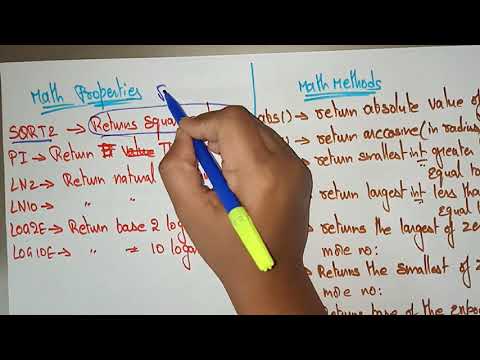 Math Properties
SQRT2 → Returns Squa
PI → Return Value T
LN2 → Return natural
LN10 → " "
LOG2E → Return base 2 log
LOG10E → " " 10 loga
Math Methods
abs() → return absolute value of
→ return arccosine (in radius)
→ return smallest int greater
Equal to
→ return largest int less tha
Equal
→ returns the largest of ze
more no:
→ Returns the smallest of z
more no:
Returns base of the